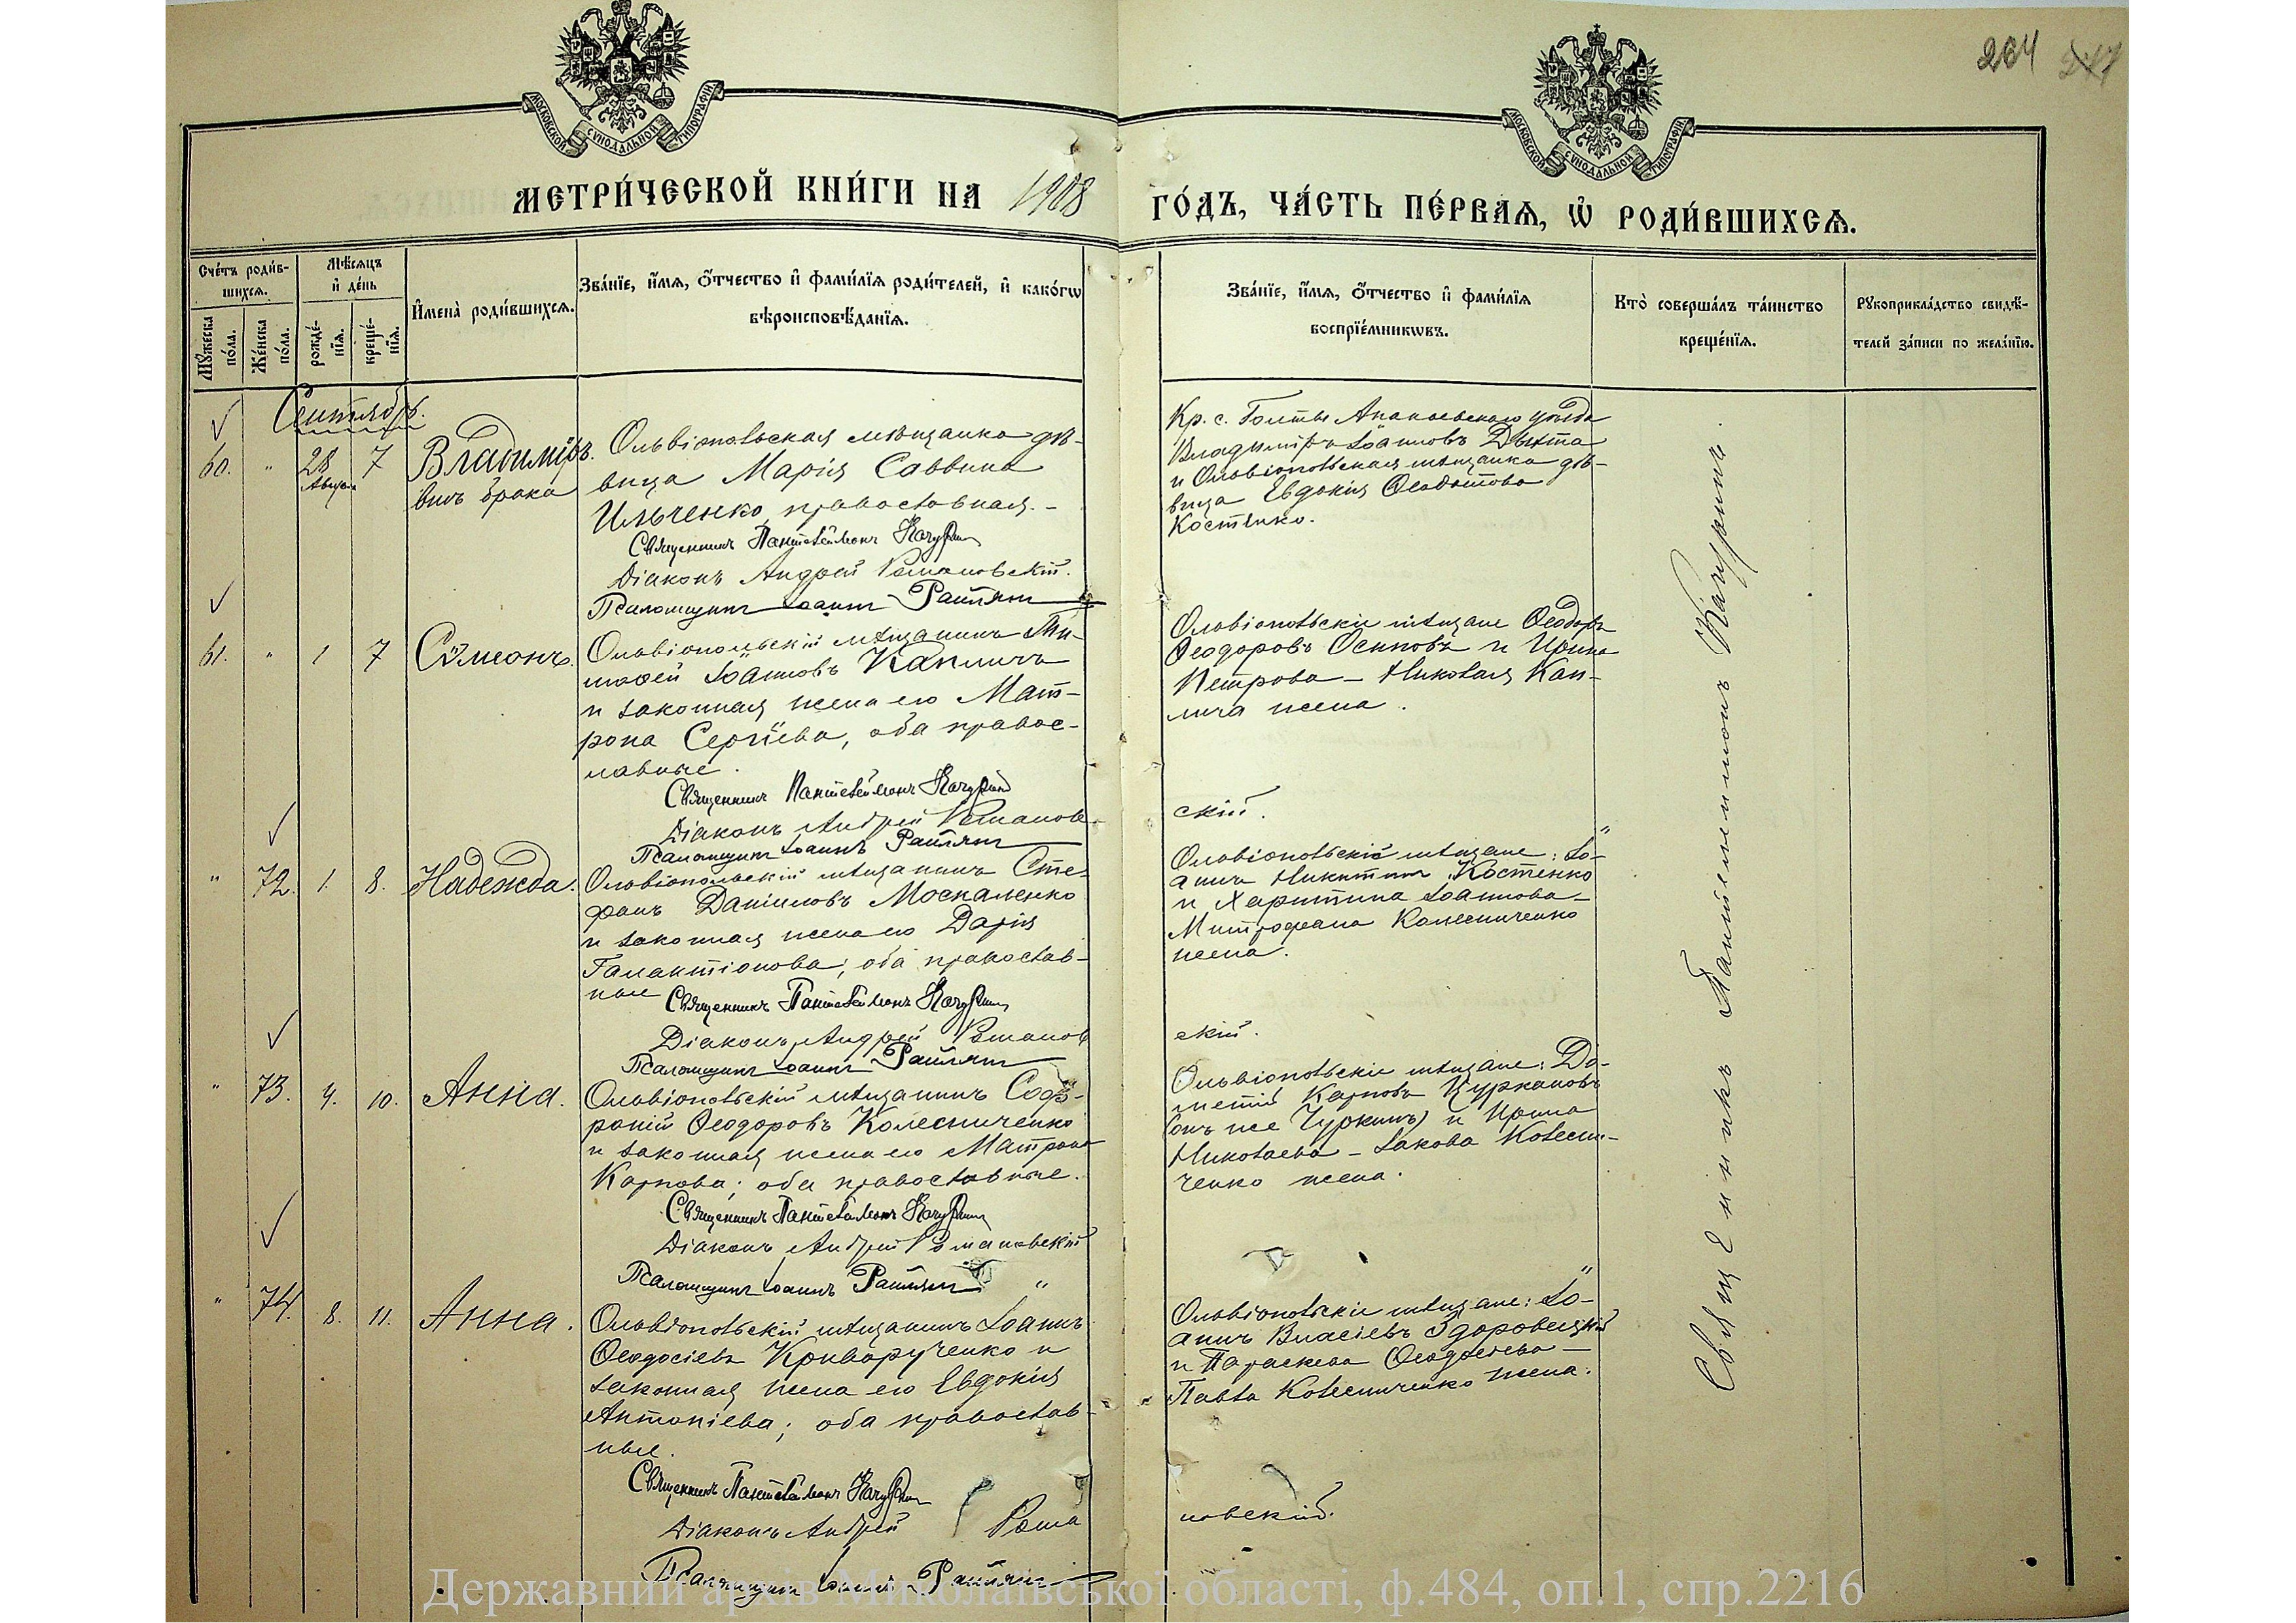 264 247
МОСКОВСКОЙ СѴНОДАЛЬНОЙ ТИПОГРАФІИ
МОСКОВСКОЙ СѴНОДАЛЬНОЙ ТИПОГРАФІИ
МЕТРИ́ЧЕСКОЙ КНИ́ГИ НА 1908 ГО́ДЪ, ЧА́СТЬ ПЕ́РВАѦ, Ѽ РОДИ́ВШИХСѦ.
Сче́тъ роди́в-
шихсѧ.
Мꙋ́жеска по́ла.
Же́нска по́ла.
Мѣ́сѧцъ и҆ де́нь
рожде́-
нїѧ.
креще́-
нїѧ.
И҆мена̀ роди́вшихсѧ.
Зва́нїе, и҆́мѧ, ѻ҆́тчество и҆ фами́лїѧ роди́телей, и҆ како́гѡ
вѣроисповѣ́данїѧ.
Зва́нїе, и҆́мѧ, ѻ҆́тчество и҆ фами́лїѧ
воспрїе́мникѡвъ.
Кто̀ соверша́лъ та́инство
креще́нїѧ.
Рꙋкоприкла́дство свидѣ́-
телей за́писи по жела́нїю.
Сентябрь.
60. " 28 Августа 7 Владимiръ.
внѣ брака
Ольвіопольская мѣщанка дѣ-
вица Марія Саввина
Ильченко, православная. -
Священникъ Пантелеймонъ Качурин
Діаконъ Андрей Романовскій.
Псаломщикъ Іоаннъ
Кр. с. Голты Ананьевскаго уѣзда
Владиміръ Іоанновъ Дыхта
и Ольвіопольская мѣщанка дѣ-
вица Евдокія Ѳеодотова
Костенко.
61. " 1 7 Сѵмеонъ.
Ольвіопольскій мѣщанинъ Ти-
моѳей Іоанновъ Капличъ
и законная жена его Мат-
рона Сергіева, оба правос-
лавные.
Священникъ Пантелеймонъ Качурин
Діаконъ Андрей Романов-
скій.
Псаломщикъ Іоаннъ
Ольвіопольскіе мѣщане Ѳеодоръ
Ѳеодоровъ Осиповъ и Ирина
Петрова - Николая Кап-
лича жена.
" 72. 1. 8. Надежда.
Ольвіопольскій мѣщанинъ Сте-
фанъ Даніиловъ Москаленко
и законная жена его Дарія
Галактіонова; оба православ-
ные
Священникъ Пантелеймонъ Качурин
Діаконъ Андрей Романов
скій.
Псаломщикъ Іоаннъ
Ольвіопольскіе мѣщане: Іо-
аннъ Никитинъ Костенко
и Харитина Іоаннова -
Митрофана Колесниченко
жена.
" 73. 4. 10. Анна.
Ольвіопольскій мѣщанинъ Соф-
роній Ѳеодоровъ Колесниченко
и законная жена его Матрона
Карпова; оба православные.
Священникъ Пантелеймонъ Качурин
Діаконъ Андрей Романовскій
Псаломщикъ Іоаннъ
Ольвіопольскіе мѣщане: До-
метій Карповъ Цуркановъ
(онъ же Чуркинъ) и Ирина
Николаева - Іакова Колесни-
ченко жена.
" 74. 8. 11. Анна.
Ольвіопольскій мѣщанинъ Іоаннъ
Ѳеодосіевъ Криворученко и
законная жена его Евдокія
Антоніева; оба православ-
ные.
Священникъ Пантелеймонъ Качурин
Діаконъ Андрей Рома
новскій.
Псаломщикъ Іоаннъ
Ольвіопольскіе мѣщане: Іо-
аннъ Власіевъ Здоровецкій
и Параскева Ѳеодосіева -
Павла Колесниченко жена.
Священникъ Пантелеимонъ Качуринъ.
Державний архів Миколаївської області, ф.484, оп.1, спр.2216